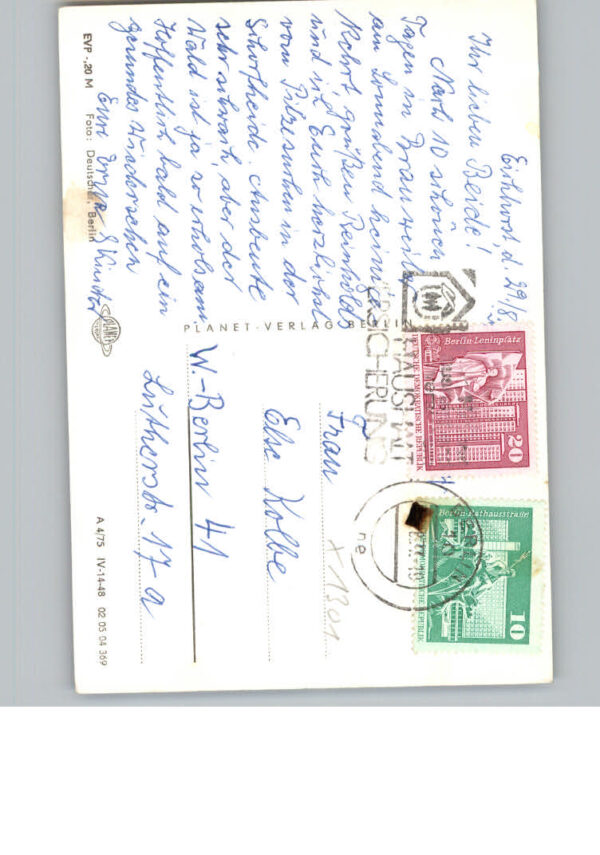 Eichhorst, d. 29/8.
Ihr lieben Beide!
Nach 10 schönen
Tagen in
am Sonnabend heim
kehrt grüßen Reinholds
und wir Euch herzlichst
vom Pilzesuchen in der
Schorfheide. Ausbeute
sehr schwach, aber der
Wald ist ja so erholsam
Hoffentlich bald auf ein
gesundes Wiedersehen
Eure
EVP -,20 M
Foto: Deutscher, Berlin
PLANET-VERLAG BERLIN
PLANET
HAUSHALT
VERSICHERUNG
Berlin-Leninplatz
DEUTSCHE DEMOKRATISCHE REPUBLIK
20
Berlin-Rathausstraße
DEUTSCHE DEMOKRATISCHE REPUBLIK
10
Frau
Else Kolbe
W-Berlin 41
Lutherstr. 17-a
x 1301
A 4/75 IV-14-48 02 05 04 369